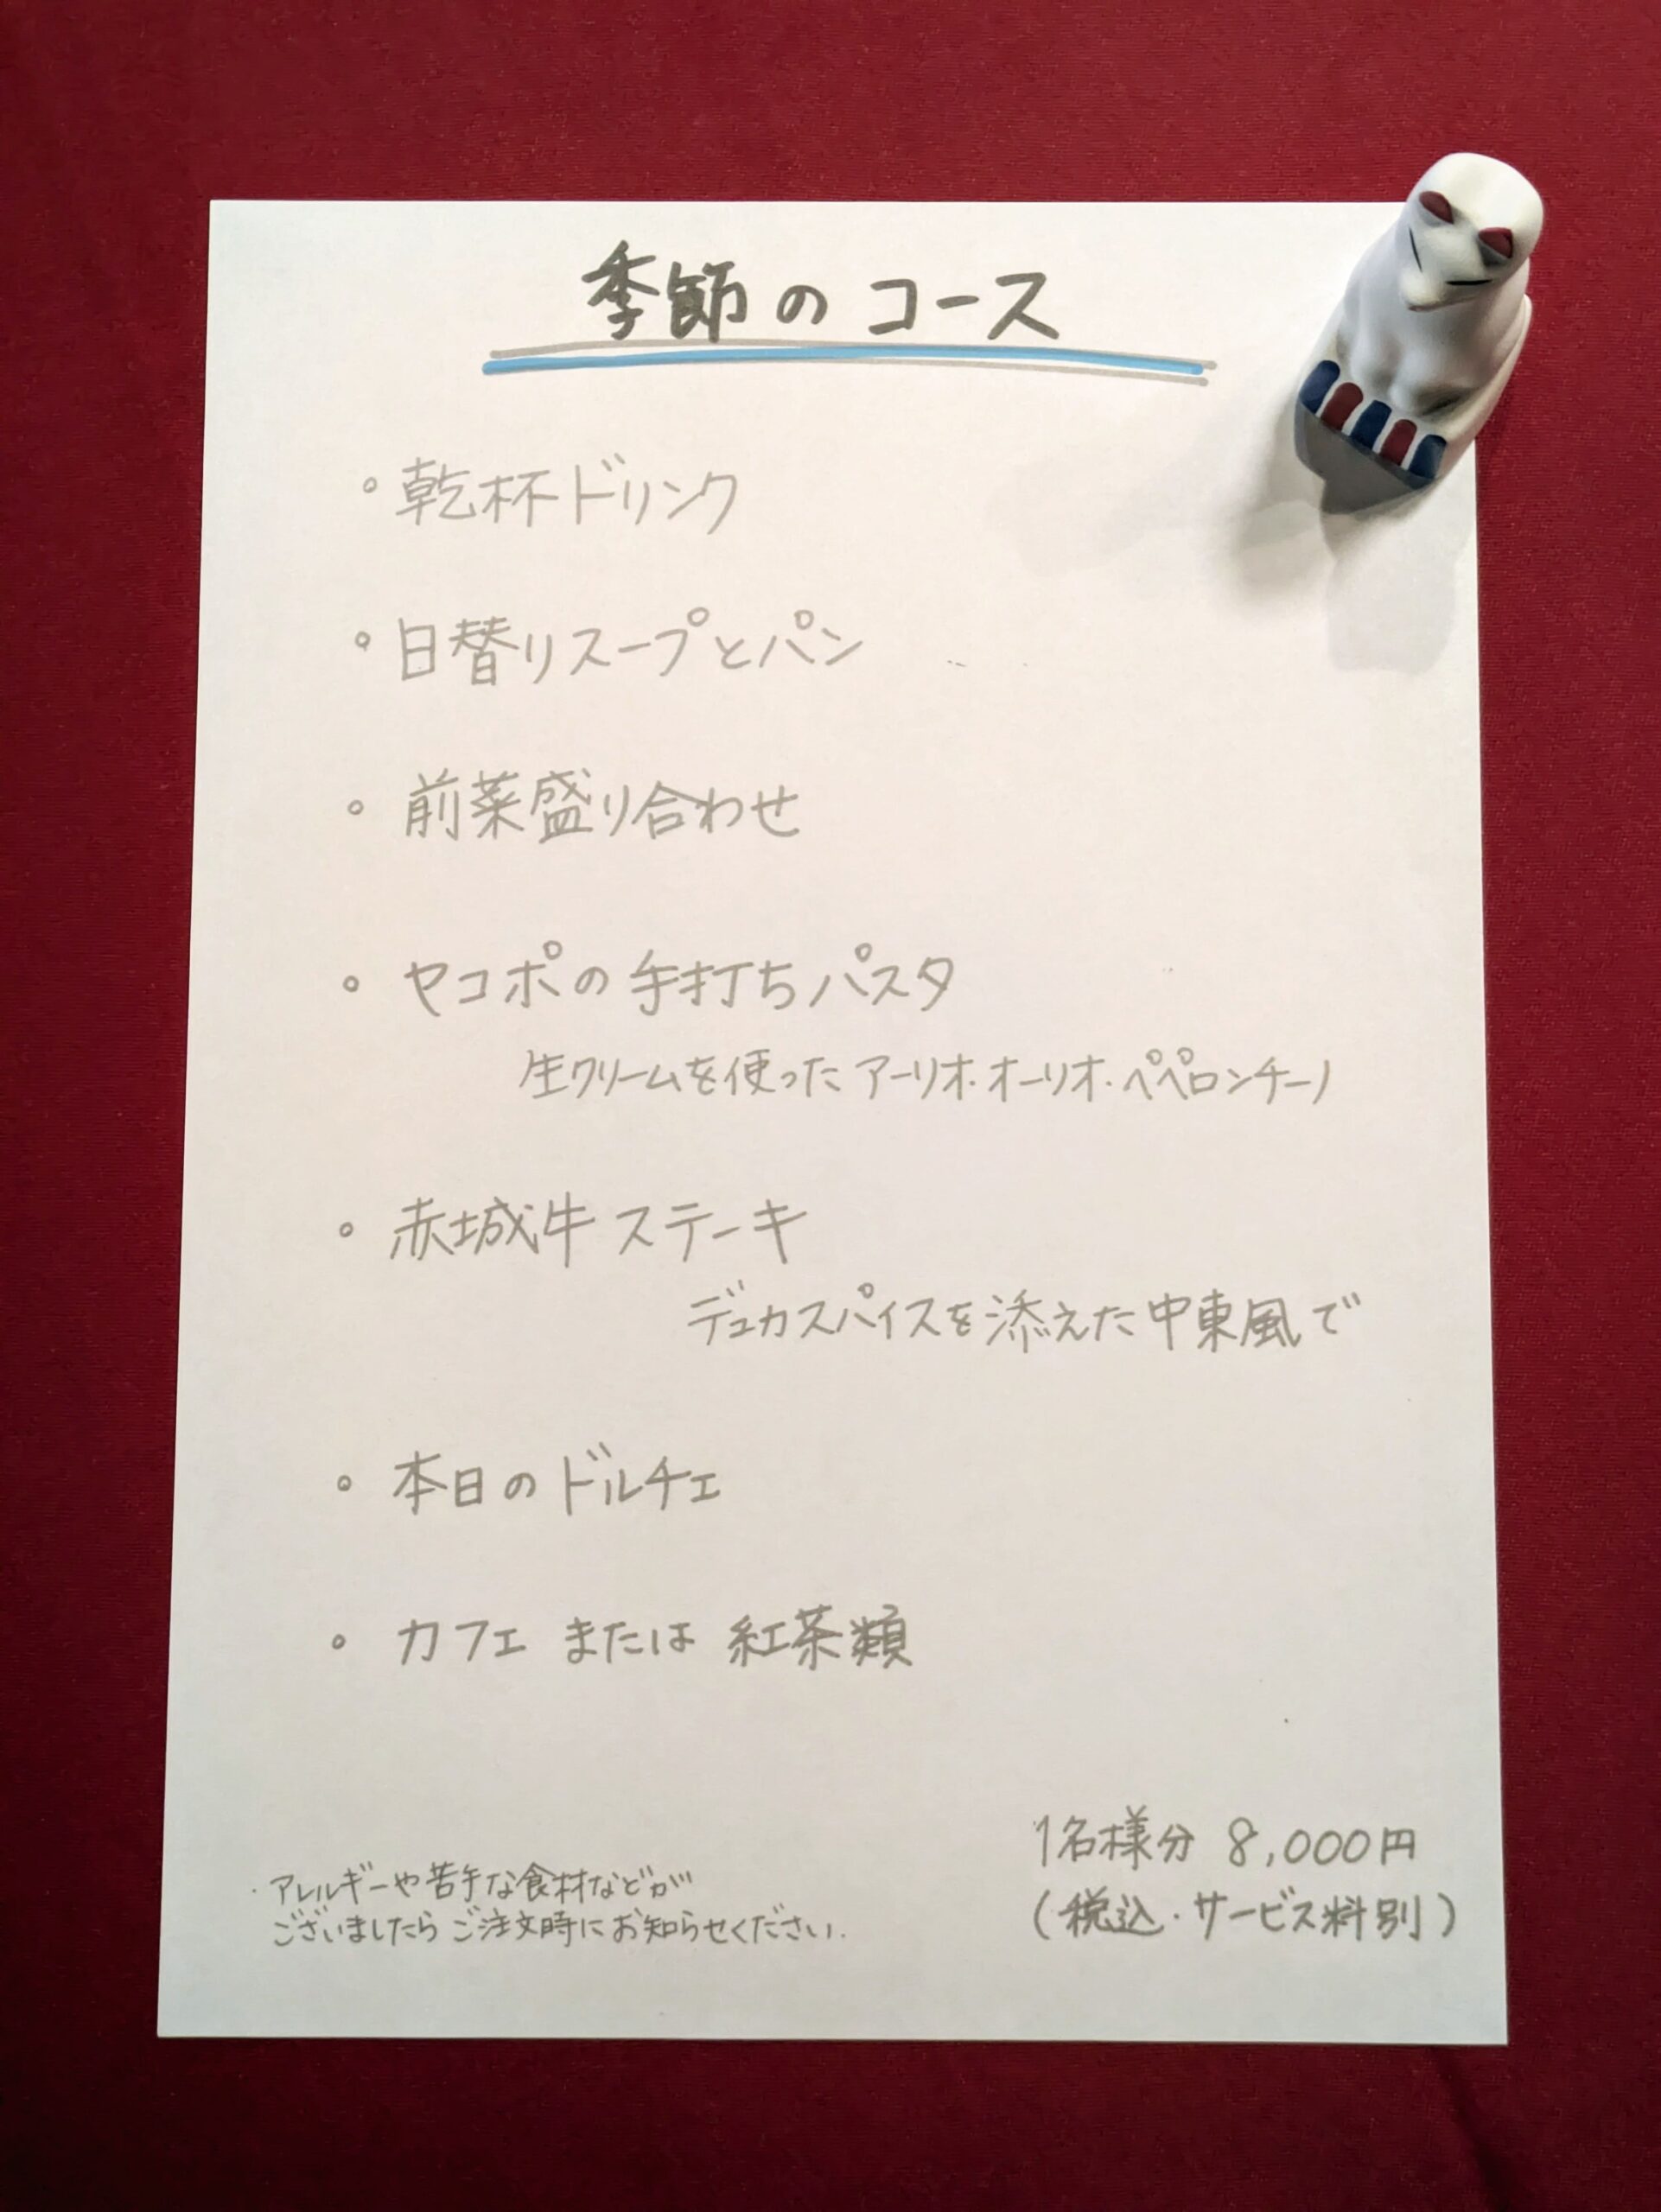 季節のコース
。乾杯ドリンク
。日替りスープとパン
。前菜盛り合わせ
。ヤコポの手打ちパスタ
生クリームを使ったアーリオ・オーリオ・ペペロンチーノ
。赤城牛ステーキ
デュカスパイスを添えた中東風で
。本日のドルチェ
。カフェ または 紅茶類
1名様分 8,000円
(税込・サービス料別)
・アレルギーや苦手な食材などが
ございましたらご注文時にお知らせください.